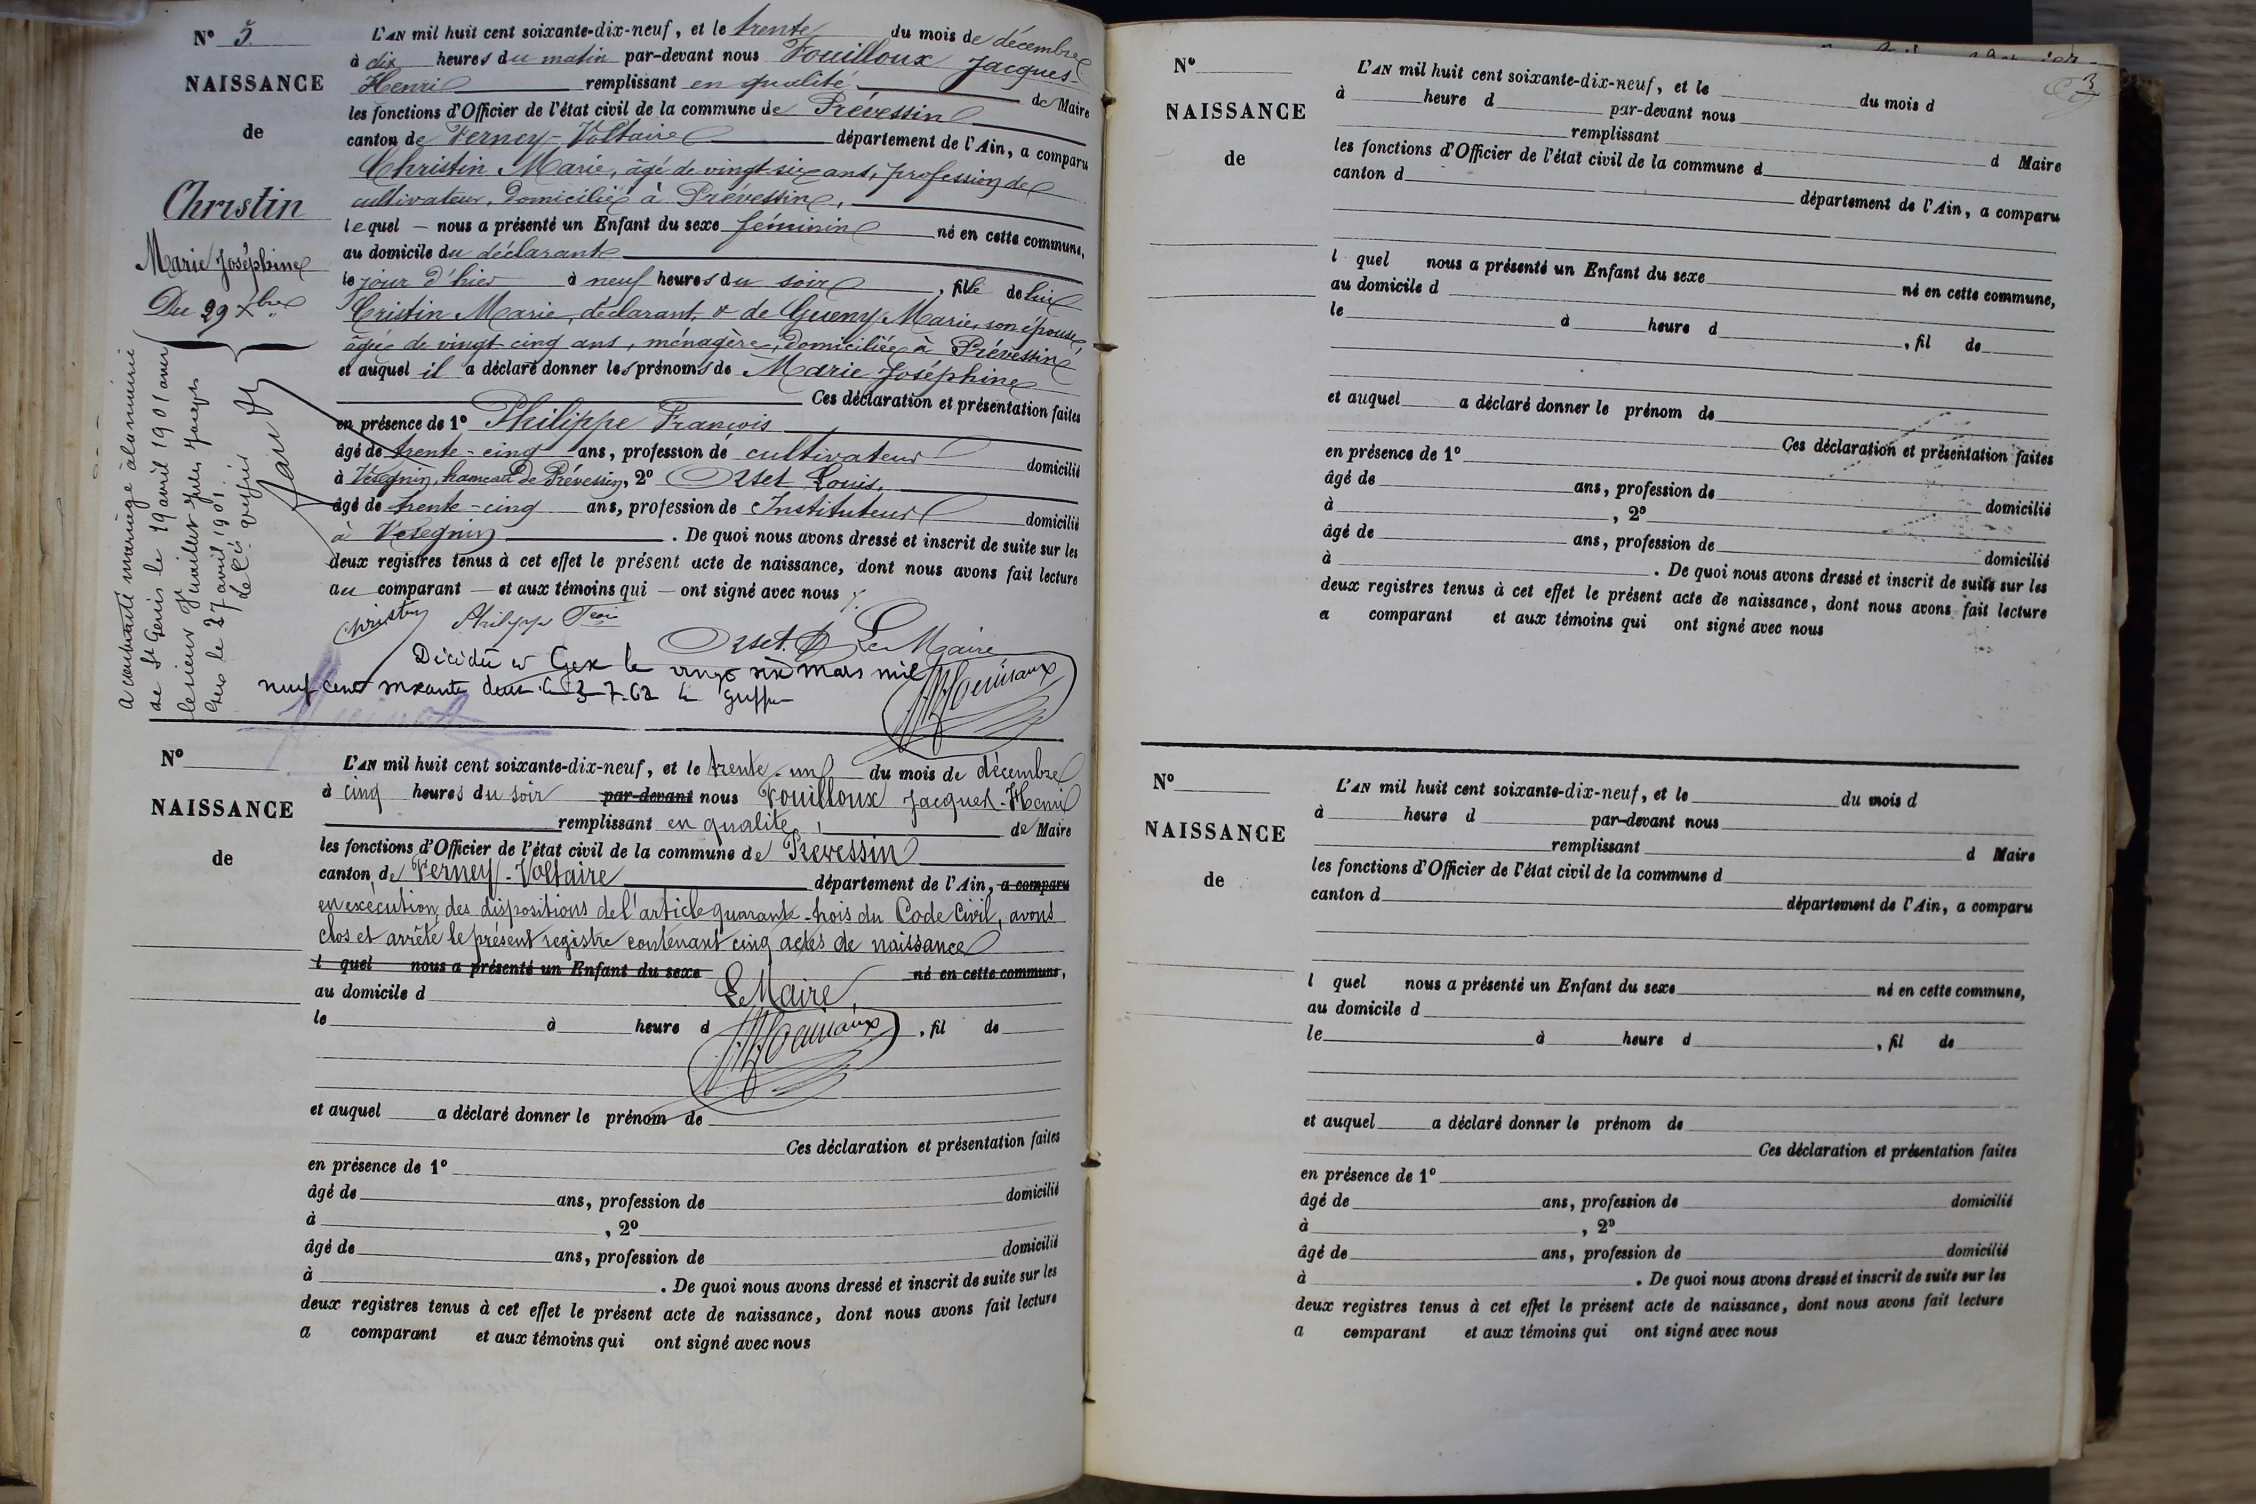 N° 5
NAISSANCE
de
Christin
Marie Joséphine
Du 29 Xbre
a contracté mariage à la mairie
de St Genis le 19 avril 1901 avec
le sieur
Gex le 27 avril 1901.
L'AN mil huit cent soixante-dix-neuf, et le trente du mois de décembre
à dix heures du matin par-devant nous Vouilloux Jacques-
Henri remplissant en qualité de Maire
les fonctions d'Officier de l'état civil de la commune de Prévessin
canton de Ferney-Voltaire département de l'Ain, a comparu
Christin Marie, âgé de vingt-six ans, profession de
cultivateur, domicilié à Prévessin,
lequel — nous a présenté un Enfant du sexe féminin né en cette commune,
au domicile du déclarant
le jour d'hier à neuf heures du soir, fille de lui
Cristin Marie, déclarant, & de Gueny Marie, son épouse,
âgée de vingt-cinq ans, ménagère, domiciliée à Prévessin
et auquel il a déclaré donner les prénoms de Marie Joséphine
Ces déclaration et présentation faites
en présence de 1° Philippe François
âgé de trente-cinq ans, profession de cultivateur domicilié
à Vésegnin, hameau de Prévessin, 2° Orset Louis,
âgé de trente-cinq ans, profession de Instituteur domicilié
à Vésegnin. De quoi nous avons dressé et inscrit de suite sur les
deux registres tenus à cet effet le présent acte de naissance, dont nous avons fait lecture
au comparant — et aux témoins qui — ont signé avec nous
Christin Philippe Fcois
Orset. L Le Maire
Décédée à Gex le vingt six mars mil
neuf cent soixante deux. le 3-7-62 le Greffier
N°
NAISSANCE
de
L'AN mil huit cent soixante-dix-neuf, et le trente-un du mois de décembre
à cinq heures du soir par-devant nous Vouilloux Jacques-Henri
remplissant en qualité, de Maire
les fonctions d'Officier de l'état civil de la commune de Prévessin
canton de Ferney-Voltaire département de l'Ain, a comparu
en exécution des dispositions de l'article quarante-trois du Code Civil, avons
clos et arrêté le présent registre contenant cinq actes de naissance
l quel nous a présenté un Enfant du sexe né en cette commune,
au domicile d Le Maire,
le à heure d , fil de
et auquel a déclaré donner le prénom de
Ces déclaration et présentation faites
en présence de 1°
âgé de ans, profession de domicilié
à , 2°
âgé de ans, profession de domicilié
à . De quoi nous avons dressé et inscrit de suite sur les
deux registres tenus à cet effet le présent acte de naissance, dont nous avons fait lecture
a comparant et aux témoins qui ont signé avec nous
3
N°
NAISSANCE
de
L'AN mil huit cent soixante-dix-neuf, et le du mois d
à heure d par-devant nous
remplissant d Maire
les fonctions d'Officier de l'état civil de la commune d
canton d département de l'Ain, a comparu
l quel nous a présenté un Enfant du sexe né en cette commune,
au domicile d
le à heure d , fil de
et auquel a déclaré donner le prénom de
Ces déclaration et présentation faites
en présence de 1°
âgé de ans, profession de domicilié
à , 2°
âgé de ans, profession de domicilié
à . De quoi nous avons dressé et inscrit de suite sur les
deux registres tenus à cet effet le présent acte de naissance, dont nous avons fait lecture
a comparant et aux témoins qui ont signé avec nous
N°
NAISSANCE
de
L'AN mil huit cent soixante-dix-neuf, et le du mois d
à heure d par-devant nous
remplissant d Maire
les fonctions d'Officier de l'état civil de la commune d
canton d département de l'Ain, a comparu
l quel nous a présenté un Enfant du sexe né en cette commune,
au domicile d
le à heure d , fil de
et auquel a déclaré donner le prénom de
Ces déclaration et présentation faites
en présence de 1°
âgé de ans, profession de domicilié
à , 2°
âgé de ans, profession de domicilié
à . De quoi nous avons dressé et inscrit de suite sur les
deux registres tenus à cet effet le présent acte de naissance, dont nous avons fait lecture
a comparant et aux témoins qui ont signé avec nous